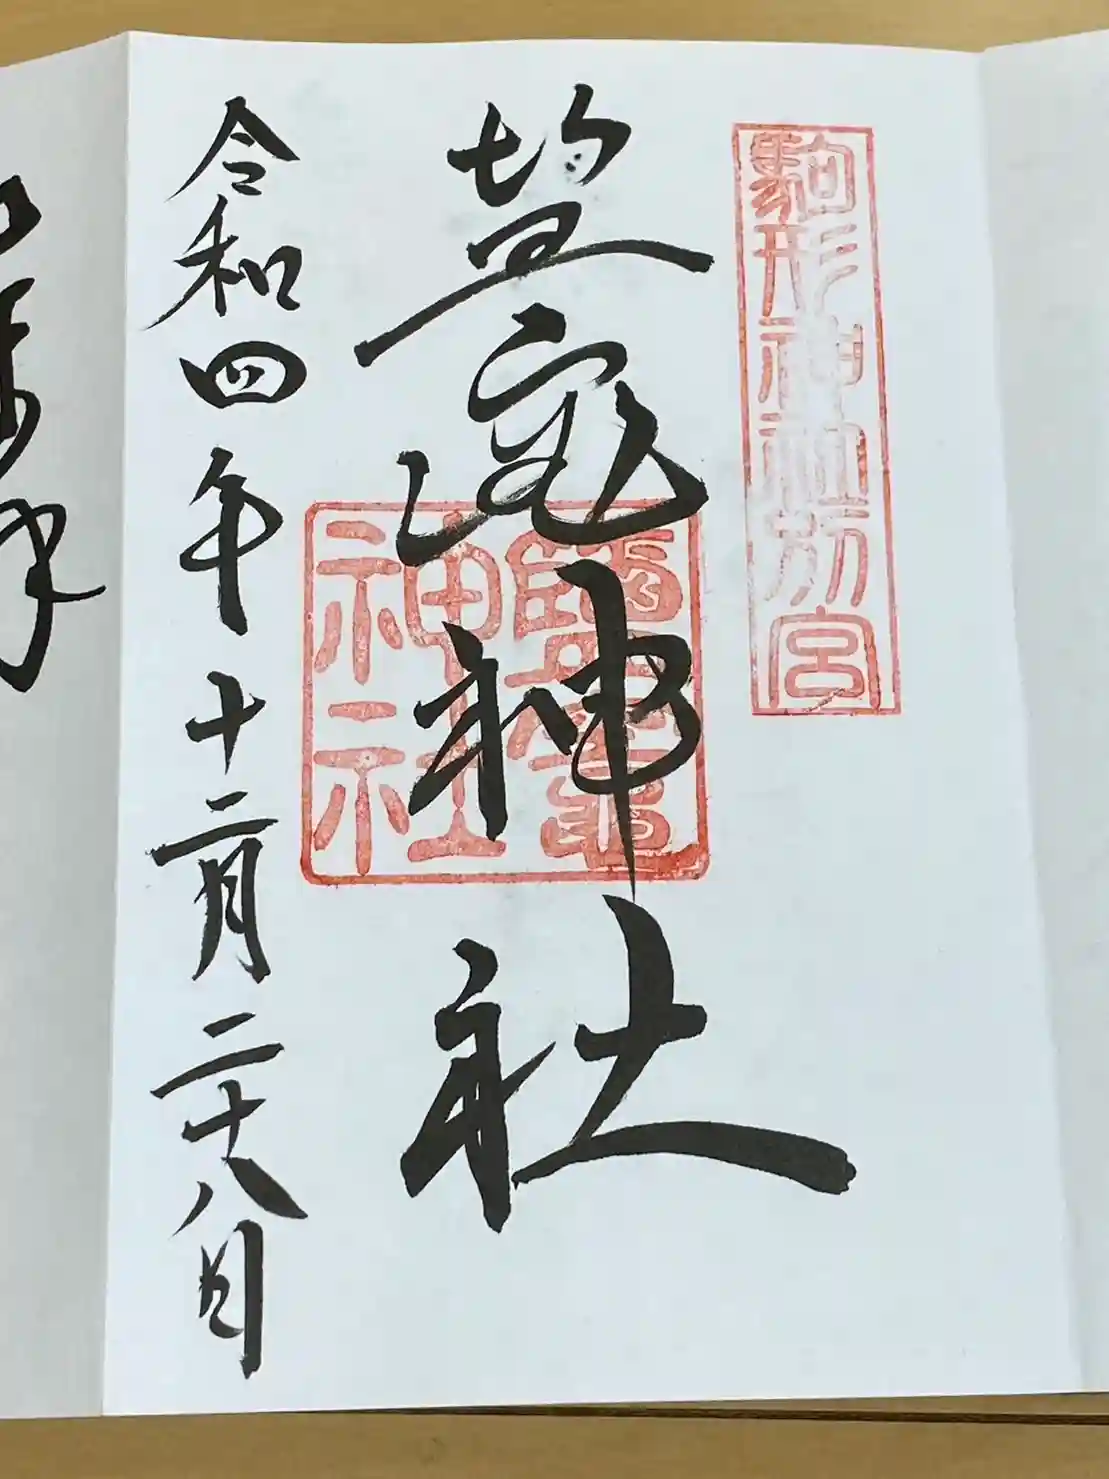 駒形神社別宮
塩竈神社
鹽竈神社
令和四年十二月二十八日